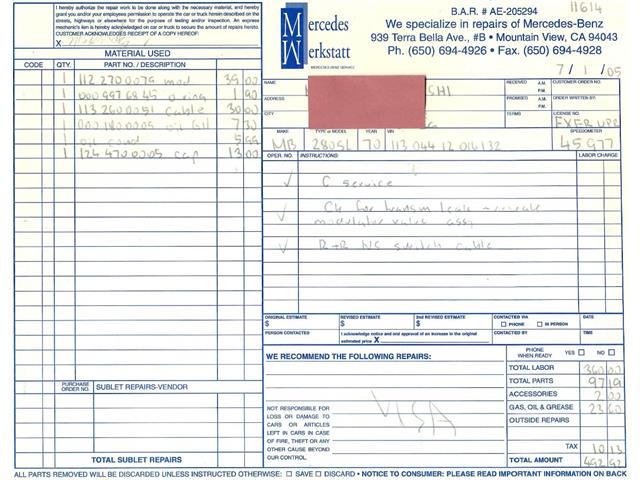 I hereby authorize the repair work to be done along with the necessary material, and hereby
grant you and/or your employees permission to operate the car or truck herein described on the
streets, highways or elsewhere for the purpose of testing and/or inspection. An express
mechanic's lien is hereby acknowledged on car or truck to secure the amount of repairs hereto.
CUSTOMER ACKNOWLEDGES RECEIPT OF A COPY HEREOF:
X
MATERIAL USED
CODE QTY. PART NO. / DESCRIPTION
1 112 270 0079 mod 39 00
1 000 997 68 45 o ring 1 90
1 113 260 0051 cable 30 00
1 000 180 0009 oil fil 7 30
1 oil cond 5 99
1 124 470 0005 cap 13 00
PURCHASE ORDER NO. SUBLET REPAIRS-VENDOR
TOTAL SUBLET REPAIRS
Mercedes
Werkstatt
MERCEDES BENZ SERVICE
B.A.R. # AE-205294
11614
We specialize in repairs of Mercedes-Benz
939 Terra Bella Ave., #B • Mountain View, CA 94043
Ph. (650) 694-4926 • Fax. (650) 694-4928
7/1/05
NAME SHI RECEIVED A.M. P.M. CUSTOMER ORDER NO.
ADDRESS PROMISED A.M. P.M. ORDER WRITTEN BY:
CITY TERMS LICENSE NO.
FXER UPR
MAKE TYPE or MODEL YEAR VIN SPEEDOMETER
MB 280SL 70 113 044 12 016132 45977
OPER. NO. INSTRUCTIONS: LABOR CHARGE
✓ C service
✓ Ck for transm leak - reseale
modulator valve assy
✓ R+R NS switch cable
ORIGINAL ESTIMATE $ REVISED ESTIMATE $ 2nd REVISED ESTIMATE $ CONTACTED VIA PHONE IN PERSON BY DATE
PERSON CONTACTED I acknowledge notice and oral approval of an increase in the original estimated price X CONTACTED BY: TIME
WE RECOMMEND THE FOLLOWING REPAIRS:
PHONE WHEN READY YES NO
TOTAL LABOR 360 00
TOTAL PARTS 97 19
ACCESSORIES 2 00
GAS, OIL & GREASE 23 60
OUTSIDE REPAIRS
VISA
NOT RESPONSIBLE FOR
LOSS OR DAMAGE TO
CARS OR ARTICLES
LEFT IN CARS IN CASE
OF FIRE, THEFT OR ANY
OTHER CAUSE BEYOND
OUR CONTROL.
TAX 10 13
TOTAL AMOUNT 492 92
ALL PARTS REMOVED WILL BE DISCARDED UNLESS INSTRUCTED OTHERWISE: SAVE DISCARD • NOTICE TO CONSUMER: PLEASE READ IMPORTANT INFORMATION ON BACK